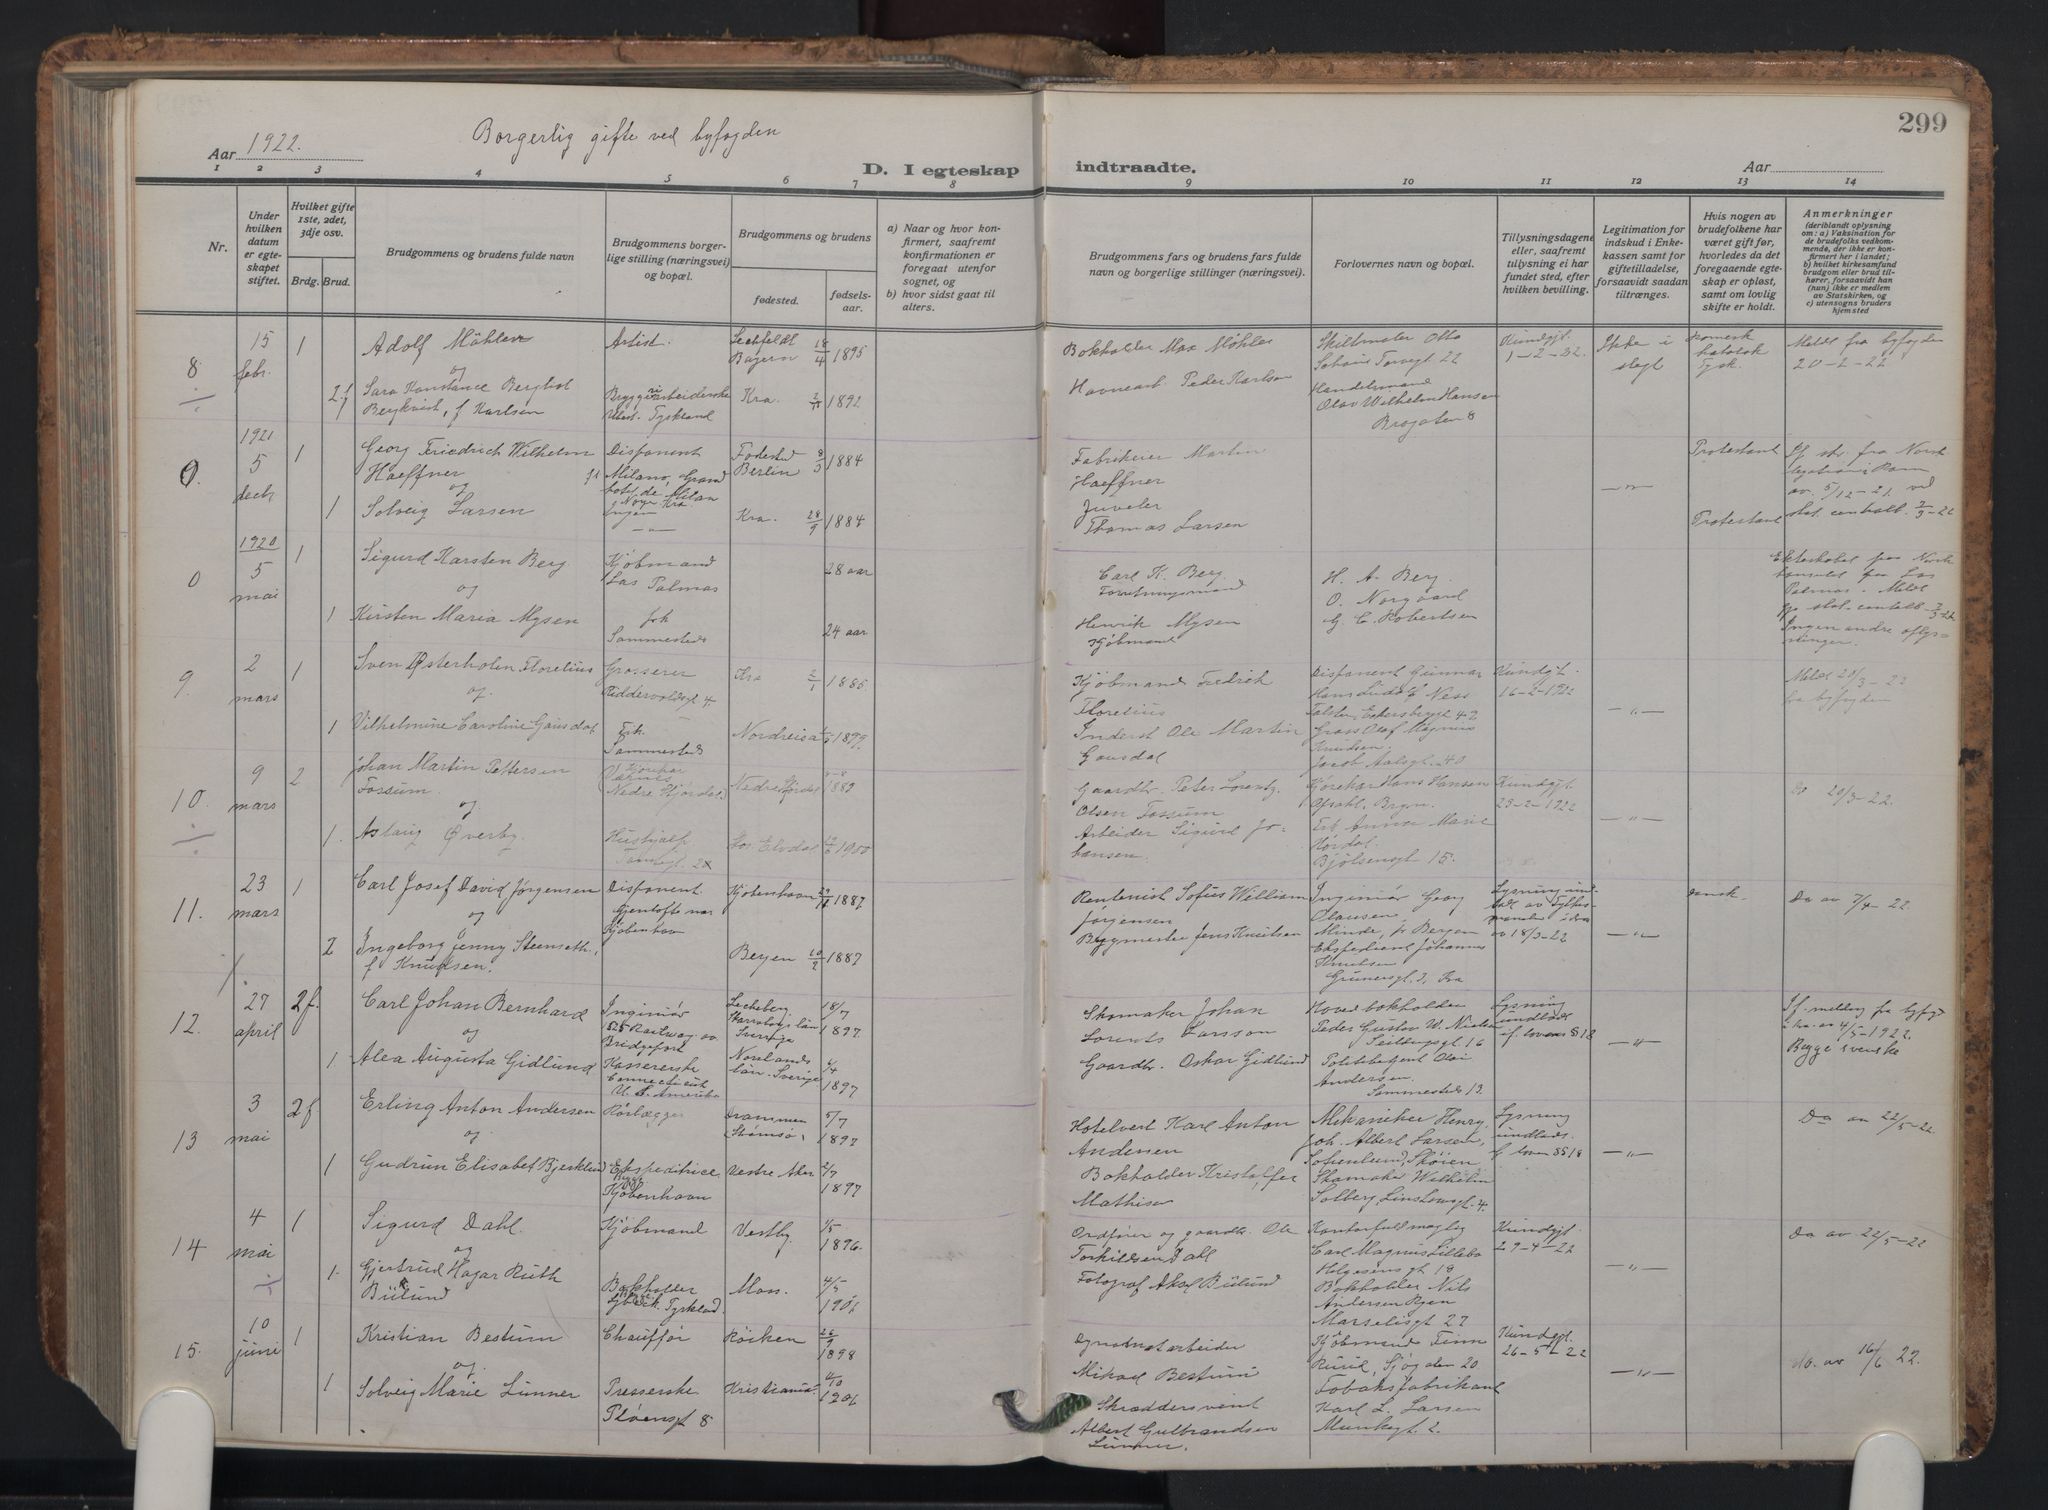 299
Aar 1922.
Borgerlig gifte ved byfogden
D. I egteskap indtraadte.
Aar
1 2 3 4 5 6 7 8 9 10 11 12 13 14
Nr.
Under hvilken datum er egteskapet stiftet.
Hvilket gifte 1ste, 2det, 3dje osv.
Brdg. Brud.
Brudgommens og brudens fulde navn
Brudgommens borgerlige stilling (næringsvei) og bopæl.
Brudgommens og brudens
fødested.
fødselsaar.
a) Naar og hvor konfirmert, saafremt konfirmationen er foregaat utenfor sognet, og
b) hvor sidst gaat til alters.
Brudgommens fars og brudens fars fulde navn og borgerlige stillinger (næringsvei).
Forlovernes navn og bopæl.
Tillysningsdagene eller, saafremt tillysning ei har fundet sted, efter hvilken bevilling.
Legitimation for indskud i Enkekassen samt for giftetilladelse, forsaavidt saadan tiltrænges.
Hvis nogen av brudefolkene har været gift før, hvorledes da det foregaaende egteskap er opløst, samt om lovlig skifte er holdt.
Anmerkninger (deriblandt oplysning om: a) Vaksination for de brudefolks vedkommende, der ikke er konfirmert her i landet; b) hvilket kirkesamfund brudgom eller brud tilhører, forsaavidt han (hun) ikke er medlem av Statskirken, og c) utensogns bruders hjemsted
8 15 febr. 1 Adolf Möhler Artist. Lechfeldt Bayern 18/4 1895 Bokholder Max Möhler Skiltmaler Otto 22 Kundgjt. 1-2-22. Ikke i slegt Romersk katolsk Tysk. Meldt fra byfogden 20-2-22
og
2.f Sara Konstance Bergliot Bergkvist, f Karlsen Bryggeriarbeiderske Tyskland Kra. 1892 Havnearb. Peder Karlson Handelsmand Olav Wilhelm Hansen Brogaten 8
0. 1921 5 decb 1 Georg Friedrich Wilhelm Haeffner Disponent Milano, Grand hotel de Milan Fødested Berlin 1884 Fabrikeier Martin Haeffner -"- Protestant
og
1 Solveig Larsen Ingen -"- Kra. 28/9 1884 Juveler Thomas Larsen Protestant
0 1920 5 mai 1 Sigurd Karsten Berg Kjøbmand Las Palmas 28 aar Carl K. Berg. Forretningsmand H. A. Berg. O. Norgaard G. C. Robertsen
og
1 Kirsten Maria Mysen frk Sammesteds 24 aar Henrik Mysen Kjøbmand Ingen andre oplysninger.
9. 2 mars 1 Sven Østerholm Florelius Grosserer Riddervoldsgt 4 Kra 2/1 1885. Kjøbmand Fredrik Florelius Disponent Gunnar Ness Kundgjt. 16-2-1922 -"- Meldt 20/3-22 fra byfogden
og.
1 Vilhelmine Caroline Gausdal Frk. Sammesteds Nordreisa 1899. Inderst Ole Martin Gausdal Gross Olaf Magnus Knudsen. Jacob Aalsgt. 40
10. 9 mars 2 Johan Martin Pettersen Fossum. Nedre Stjørdal Nedre Stjørdal 1883 Gaardbr. Peter Lorentz Olsen Fossum Hans Hansen Opsahl. Bryn. Kundgjt. 23-2-1922 -"- Do 20/3-22.
og
1. Aslaug Øverby. Hushjelp Stor-Elvdal 1900 Arbeider Sigurd Johansen. Frk Anna Marie Hørdal. Bjølsengt 15.
11. 23 mars 1 Carl Josef David Jørgensen Disponent. Gjentofte nær Kjøbenhavn Kjøbenhavn 1887. Rentenist Sofus William Jørgensen Ingeniør Georg Olausen, Minde, pr Bergen av 18/3-22 -"- dansk. Do av 7/4-22.
og
2 Ingeborg Jenny Steenseth, f Knudsen. Bergen 1887 Byggmester Jens Knutsen Ekspedient Johannes Knutsen Grunersgt. 3, Kra
12. 27 april 2f. Carl Johan Bernhard Ingeniør 525 Railway av. Bridgeport Sverige 18/7 1897 Skomaker Johan Lorents Larsson Hovedbokholder Peder Gustav W. Nielsen 16 Lysning undladt f. loven §18 -"- Begge svenske
og
1 Alea Augusta Gidlund Kassererske Connecticut U. S. Amerika Norrlands län. Sverige 4/4 1897 Gaardbr. Oskar Gidlund Politibetjent Olai Andersen. Sammesteds 13.
13 3 mai 2f Erling Anton Andersen Rørlægger Drammen (Strømsø) 5/7 1897 Hotelvert Karl Anton Andersen Mekaniker Henry Joh. Albert Larsen, Sofienlund, Skøien Lysning undladt. f loven §18 -"- Do av 22/5-22.
og
1 Gudrun Elisabet Bjerklund Ekspeditrice Begge Kjøbenhavn Vestre Aker 2/7 1897 Bokholder Kristoffer Mathisen Skomaker Wilhelm Solberg, Linstowsgt. 4.
14 4 mai 1 Sigurd Dahl. Kjøbmand Vestby. 1/5 1896. Ordfører og gaardbr. Ole Torkildsen Dahl Kontorfuldmægtig Carl Magnus Lillebo Helgesensgt 18 Kundgjt. 29-4-22 -"- Do av 22/5-22
og
1. Gjertrud Hagar Ruth Bülund Bokholder Lybeck. Tyskland. Moss. 4/5 1901 Fotograf Aksel Bülund Bokholder Nils Andersen Ryen Marselisgt 27
15. 10 juni 1 Kristian Bestum Chauffør Røiken 26/9 1898 Dynamitarbeider Mikael Bestum Kjøbmand Finn Rurik, Sjøgaten 20. Kundgjt. 26-5-22 -"- do. av 16/6 22.
og.
1 Solveig Marie Limner Presserske Pløensgt 8 Kristiania. 4/10 1901 Skræddersvend Albert Gulbrandsen Limner. Tobaksfabrikant Karl L. Larsen Munkegt. 2.